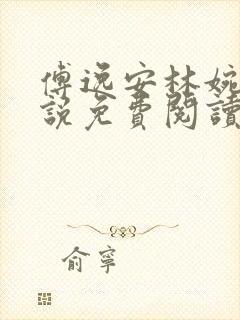 傅逸安林婉
說免費閱讀
俞寧